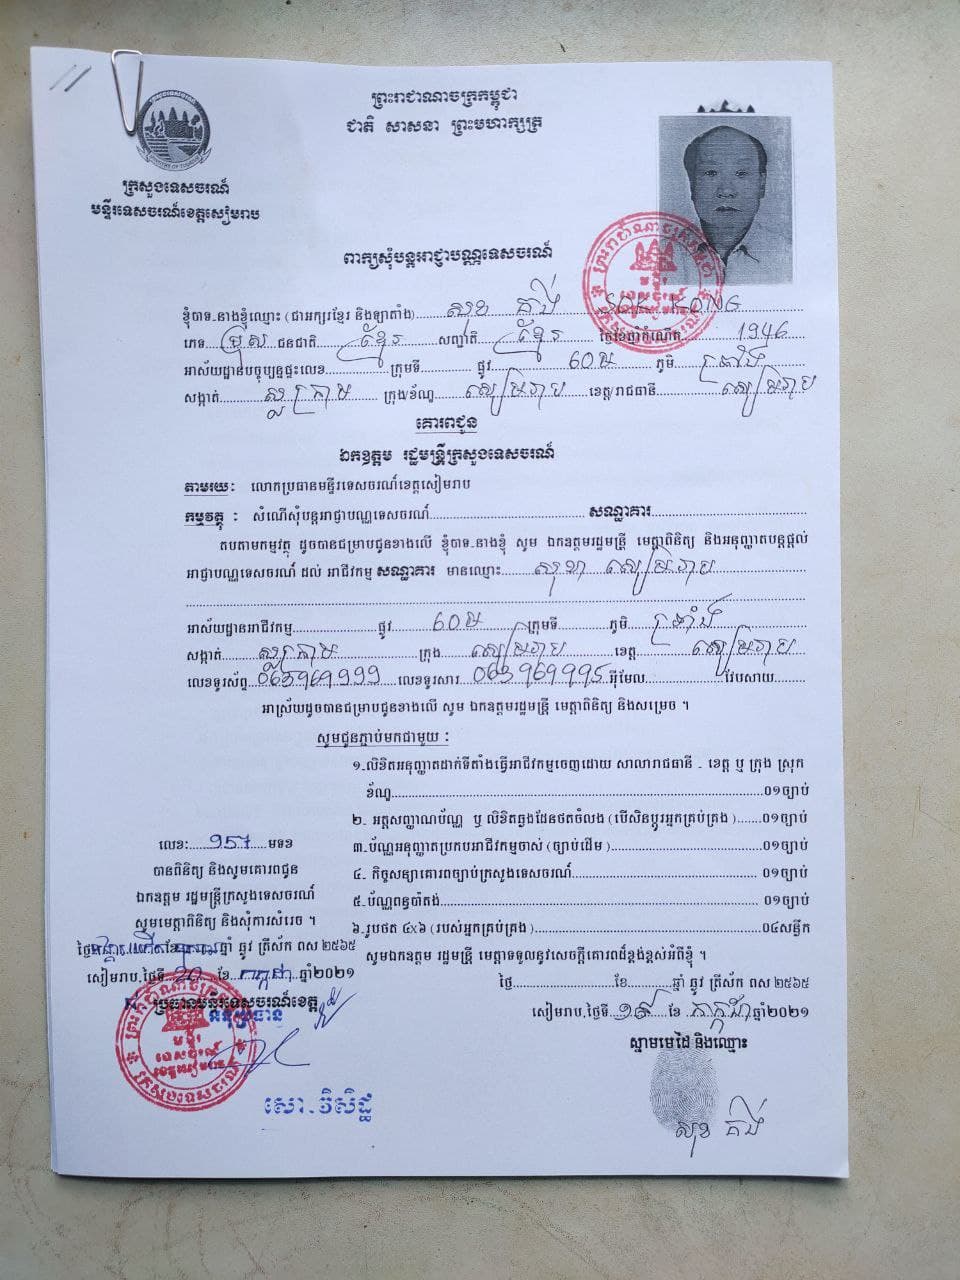 ព្រះរាជាណាចក្រកម្ពុជា
ជាតិ សាសនា ព្រះមហាក្សត្រ
MINISTRY OF TOURISM
ក្រសួងទេសចរណ៍
មន្ទីរទេសចរណ៍ខេត្តសៀមរាប
ពាក្យសុំបន្តអាជ្ញាបណ្ណទេសចរណ៍
ខ្ញុំបាទ-នាងខ្ញុំឈ្មោះ (ជាអក្សរខ្មែរ និងឡាតាំង) សុខ គង់ SOK KONG
ភេទ ប្រុស ជនជាតិ ខ្មែរ សញ្ជាតិ ខ្មែរ ថ្ងៃខែឆ្នាំកំណើត 1946
អាស័យដ្ឋានបច្ចុប្បន្នផ្ទះលេខ ក្រុមទី ផ្លូវ 60ម ភូមិ ត្រាំង
សង្កាត់ ស្លក្រាម ក្រុង/ខ័ណ្ឌ សៀមរាប ខេត្ត/រាជធានី សៀមរាប
គោរពជូន
ឯកឧត្តម រដ្ឋមន្ត្រីក្រសួងទេសចរណ៍
តាមរយៈ លោកប្រធានមន្ទីរទេសចរណ៍ខេត្តសៀមរាប
កម្មវត្ថុ : សំណើសុំបន្តអាជ្ញាបណ្ណទេសចរណ៍ សណ្ឋាគារ
តបតាមកម្មវត្ថុ ដូចបានជម្រាបជូនខាងលើ ខ្ញុំបាទ-នាងខ្ញុំ សូម ឯកឧត្តមរដ្ឋមន្ត្រី មេត្តាពិនិត្យ និងអនុញ្ញាតបន្តផ្តល់
អាជ្ញាបណ្ណទេសចរណ៍ ដល់ អាជីវកម្ម សណ្ឋាគារ មានឈ្មោះ សុខា សៀមរាប
អាស័យដ្ឋានអាជីវកម្ម ផ្លូវ 60ម ក្រុមទី ភូមិ ត្រាំង
សង្កាត់ ស្លក្រាម ក្រុង សៀមរាប ខេត្ត សៀមរាប
លេខទូរស័ព្ទ 063969999 លេខទូរសារ 063969995 អ៊ីមែល វែបសាយ
អាស្រ័យដូចបានជម្រាបជូនខាងលើ សូម ឯកឧត្តមរដ្ឋមន្ត្រី មេត្តាពិនិត្យ និងសម្រេច ។
សូមជូនភ្ជាប់មកជាមួយ :
១-លិខិតអនុញ្ញាតដាក់ទីតាំងធ្វើអាជីវកម្មចេញដោយ សាលារាជធានី - ខេត្ត ឬ ក្រុង ស្រុក
ខ័ណ្ឌ ០១ច្បាប់
២- អត្តសញ្ញាណប័ណ្ណ ឬ លិខិតឆ្លងដែនថតចំលង (បើសិនប្តូរអ្នកគ្រប់គ្រង) ០១ច្បាប់
៣-ប័ណ្ណអនុញ្ញាតប្រកបអាជីវកម្មចាស់ (ច្បាប់ដើម) ០១ច្បាប់
៤- កិច្ចសន្យាគោរពច្បាប់ក្រសួងទេសចរណ៍ ០១ច្បាប់
៥-ប័ណ្ណពន្ធប៉ាតង់ ០១ច្បាប់
៦-រូបថត ៤x៦ (របស់អ្នកគ្រប់គ្រង) ០៤សន្លឹក
សូមឯកឧត្តម រដ្ឋមន្ត្រី មេត្តាទទួលនូវសេចក្តីគោរពដ៏ខ្ពង់ខ្ពស់អំពីខ្ញុំ ។
ថ្ងៃ ខែ ឆ្នាំ ឆ្លូវ ត្រីស័ក ពស ២៥៦៥
សៀមរាប,ថ្ងៃទី ១៩ ខែ កក្កដា ឆ្នាំ២០២១
ស្នាមមេដៃ និងឈ្មោះ
សុខ គង់
លេខ: ១៥៧ មទខ
បានពិនិត្យ និងសូមគោរពជូន
ឯកឧត្តម រដ្ឋមន្ត្រីក្រសួងទេសចរណ៍
សូមមេត្តាពិនិត្យ និងសុំការសំរេច ។
ឆ្នាំ ឆ្លូវ ត្រីស័ក ពស ២៥៦៥
សៀមរាប,ថ្ងៃទី ២០ ខែ កក្កដា ឆ្នាំ២០២១
ប្រធានមន្ទីរទេសចរណ៍ខេត្ត
សោ.វិសិដ្ឋ